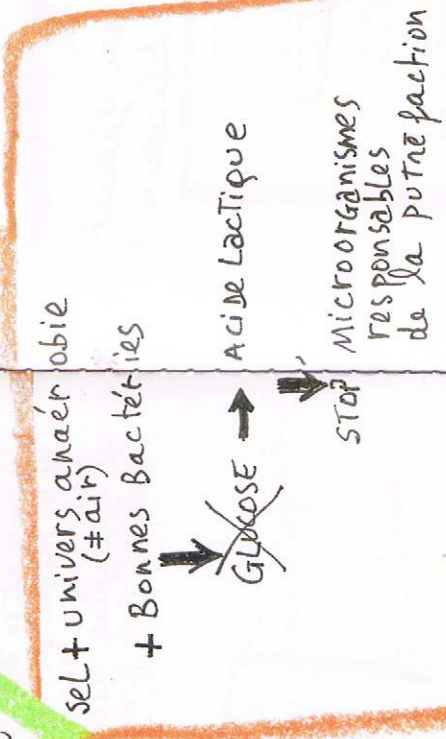 seL + univers anaérobie
(≠ air)
+ Bonnes Bactéries
GLUCOSE → Acide Lactique
STOP Microorganismes
responsables
de la putréfaction